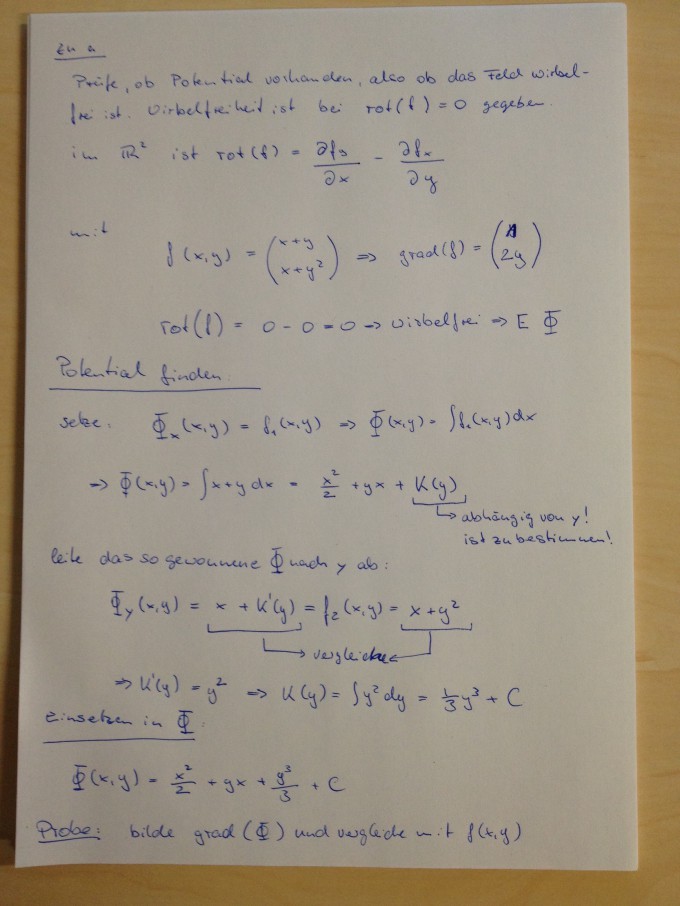 zu a
Prüfe, ob Potential vorhanden, also ob das Feld wirbel-
frei ist. Wirbelfreiheit ist bei rot(f) = 0 gegeben.
im ℝ² ist rot(f) = ∂fy/∂x - ∂fx/∂y
mit f(x,y) = (x+y, x+y²) => grad(f) = (1, 2y)
rot(f) = 0 - 0 = 0 => wirbelfrei => E Φ
Potential finden:
setze: Φx(x,y) = f1(x,y) => Φ(x,y) = ∫f1(x,y)dx
=> Φ(x,y) = ∫x+y dx = x²/2 + yx + K(y)
→ abhängig von y!
ist zu bestimmen!
leite das so gewonnene Φ nach y ab:
Φy(x,y) = x + K'(y) = f2(x,y) = x+y²
vergleiche
=> K'(y) = y² => K(y) = ∫y² dy = 1/3 y³ + C
Einsetzen in Φ:
Φ(x,y) = x²/2 + yx + y³/3 + C
Probe: bilde grad(Φ) und vergleiche mit f(x,y)